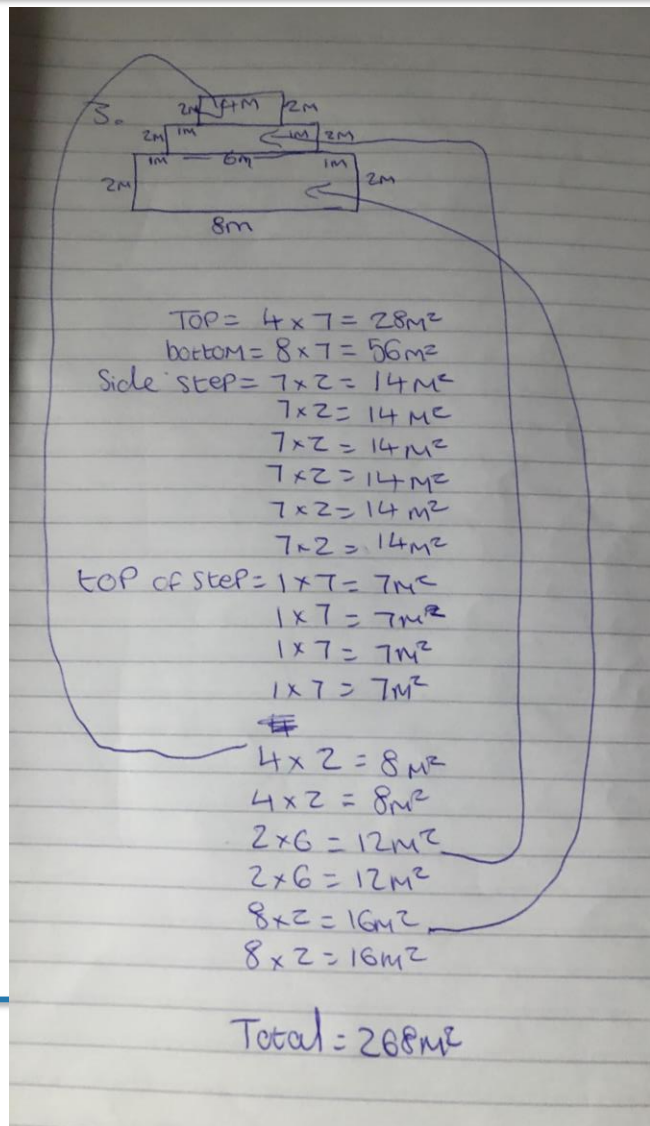 3.
2M 4M 2M
2M 1M 1M 2M
1M 6m 1M
2M 2M
8m
TOP = 4 x 7 = 28M²
bottom = 8 x 7 = 56M²
Side step = 7 x 2 = 14M²
7 x 2 = 14M²
7 x 2 = 14M²
7 x 2 = 14M²
7 x 2 = 14M²
7 x 2 = 14M²
top of step = 1 x 7 = 7M²
1 x 7 = 7M²
1 x 7 = 7M²
1 x 7 = 7M²
4 x 2 = 8M²
4 x 2 = 8M²
2 x 6 = 12M²
2 x 6 = 12M²
8 x 2 = 16M²
8 x 2 = 16M²
Total = 268M²